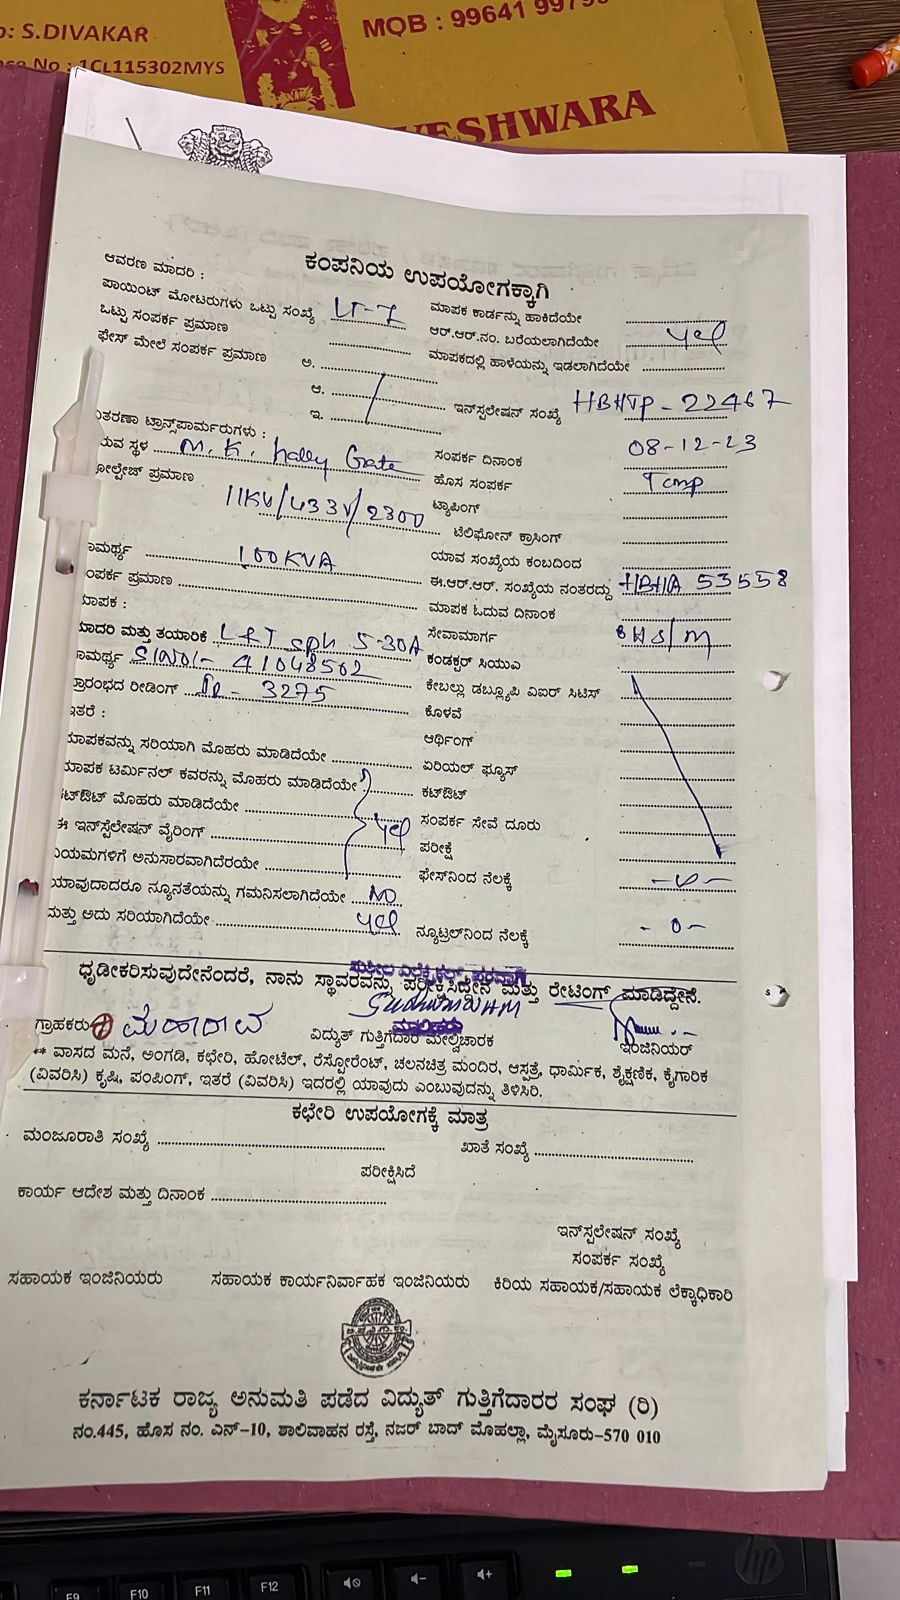 : S.DIVAKAR
MOB : 99641 9979
No : 1CL115302MYS
ESHWARA
ಕಂಪನಿಯ ಉಪಯೋಗಕ್ಕಾಗಿ
ಆವರಣ ಮಾದರಿ :
ಪಾಯಿಂಟ್ ಮೋಟರುಗಳು ಒಟ್ಟು ಸಂಖ್ಯೆ LT-7
ಒಟ್ಟು ಸಂಪರ್ಕ ಪ್ರಮಾಣ
ಫೇಸ್ ಮೇಲೆ ಸಂಪರ್ಕ ಪ್ರಮಾಣ ಅ.
ಆ.
ಇ.
ಮಾಪಕ ಕಾರ್ಡನ್ನು ಹಾಕಿದೆಯೇ
ಆರ್.ಆರ್.ನಂ. ಬರೆಯಲಾಗಿದೆಯೇ yes
ಮಾಪಕದಲ್ಲಿ ಹಾಳೆಯನ್ನು ಇಡಲಾಗಿದೆಯೇ
ಇನ್‌ಸ್ಟಲೇಷನ್ ಸಂಖ್ಯೆ HBHTP-22467
ವಿತರಣಾ ಟ್ರಾನ್ಸ್‌ಫಾರ್ಮರುಗಳು :
ಯುವ ಸ್ಥಳ M.K. hally Gate
ವೋಲ್ಟೇಜ್ ಪ್ರಮಾಣ
11KV/433V/2300
ಸಾಮರ್ಥ್ಯ 100KVA
ಸಂಪರ್ಕ ಪ್ರಮಾಣ
ಮಾಪಕ :
ಮಾದರಿ ಮತ್ತು ತಯಾರಿಕೆ L&T SPH 5-30A
ಸಾಮರ್ಥ್ಯ Sl No:- 41048502
ಪ್ರಾರಂಭದ ರೀಡಿಂಗ್ IR- 3275
ಇತರೆ :
ಸಂಪರ್ಕ ದಿನಾಂಕ 08-12-23
ಹೊಸ ಸಂಪರ್ಕ Temp
ಟ್ಯಾಪಿಂಗ್
ಟೆಲಿಫೋನ್ ಕ್ರಾಸಿಂಗ್
ಯಾವ ಸಂಖ್ಯೆಯ ಕಂಬದಿಂದ
ಈ.ಆರ್.ಆರ್. ಸಂಖ್ಯೆಯ ನಂತರದ್ದು HBHA 53558
ಮಾಪಕ ಓದುವ ದಿನಾಂಕ
ಸೇವಾಮಾರ್ಗ
ಕಂಡಕ್ಟರ್ ಸಿಯುಎ
ಕೇಬಲ್ಲು ಡಬ್ಲ್ಯೂಪಿ ವಿಐಆರ್ ಸಿಟಿಸ್
ಕೊಳವೆ
ಆರ್ಥಿಂಗ್
ಏರಿಯಲ್ ಫ್ಯೂಸ್
ಕಟ್‌ಔಟ್
ಸಂಪರ್ಕ ಸೇವೆ ದೂರು
ಪರೀಕ್ಷೆ
ಫೇಸ್‌ನಿಂದ ನೆಲಕ್ಕೆ -0-
ನ್ಯೂಟ್ರಲ್‌ನಿಂದ ನೆಲಕ್ಕೆ -0-
ಮಾಪಕವನ್ನು ಸರಿಯಾಗಿ ಮೊಹರು ಮಾಡಿದೆಯೇ
ಮಾಪಕ ಟರ್ಮಿನಲ್ ಕವರನ್ನು ಮೊಹರು ಮಾಡಿದೆಯೇ
ಕಟ್‌ಔಟ್ ಮೊಹರು ಮಾಡಿದೆಯೇ yes
ಈ ಇನ್‌ಸ್ಟಲೇಷನ್ ವೈರಿಂಗ್
ನಿಯಮಗಳಿಗೆ ಅನುಸಾರವಾಗಿದೆರಯೇ
ಯಾವುದಾದರೂ ನ್ಯೂನತೆಯನ್ನು ಗಮನಿಸಲಾಗಿದೆಯೇ NO
ಮತ್ತು ಅದು ಸರಿಯಾಗಿದೆಯೇ yes
ಧೃಡೀಕರಿಸುವುದೇನೆಂದರೆ, ನಾನು ಸ್ಥಾವರವನ್ನು ಪರೀಕ್ಷಿಸಿದ್ದೇನೆ ಮತ್ತು ರೇಟಿಂಗ್ ಮಾಡಿದ್ದೇನೆ.
ಗ್ರಾಹಕರು ಮೆಹಾದಾವ ವಿದ್ಯುತ್ ಗುತ್ತಿಗೆದಾರ ಮೇಲ್ವಿಚಾರಕ ಇಂಜಿನಿಯರ್
** ವಾಸದ ಮನೆ, ಅಂಗಡಿ, ಕಛೇರಿ, ಹೋಟೆಲ್, ರೆಸ್ಟೋರೆಂಟ್, ಚಲನಚಿತ್ರ ಮಂದಿರ, ಆಸ್ಪತ್ರೆ, ಧಾರ್ಮಿಕ, ಶೈಕ್ಷಣಿಕ, ಕೈಗಾರಿಕ
(ವಿವರಿಸಿ) ಕೃಷಿ, ಪಂಪಿಂಗ್, ಇತರೆ (ವಿವರಿಸಿ) ಇದರಲ್ಲಿ ಯಾವುದು ಎಂಬುವುದನ್ನು ತಿಳಿಸಿರಿ.
ಕಛೇರಿ ಉಪಯೋಗಕ್ಕೆ ಮಾತ್ರ
ಮಂಜೂರಾತಿ ಸಂಖ್ಯೆ ಖಾತೆ ಸಂಖ್ಯೆ
ಪರೀಕ್ಷಿಸಿದೆ
ಕಾರ್ಯ ಆದೇಶ ಮತ್ತು ದಿನಾಂಕ
ಇನ್‌ಸ್ಟಲೇಷನ್ ಸಂಖ್ಯೆ
ಸಂಪರ್ಕ ಸಂಖ್ಯೆ
ಸಹಾಯಕ ಇಂಜಿನಿಯರು ಸಹಾಯಕ ಕಾರ್ಯನಿರ್ವಾಹಕ ಇಂಜಿನಿಯರು ಕಿರಿಯ ಸಹಾಯಕ/ಸಹಾಯಕ ಲೆಕ್ಕಾಧಿಕಾರಿ
ಕರ್ನಾಟಕ ರಾಜ್ಯ ಅನುಮತಿ ಪಡೆದ ವಿದ್ಯುತ್ ಗುತ್ತಿಗೆದಾರರ ಸಂಘ (ರಿ)
ನಂ.445, ಹೊಸ ನಂ. ಎನ್-10, ಶಾಲಿವಾಹನ ರಸ್ತೆ, ನಜರ್ ಬಾದ್ ಮೊಹಲ್ಲಾ, ಮೈಸೂರು-570 010
F9 F10 F11 F12
hp